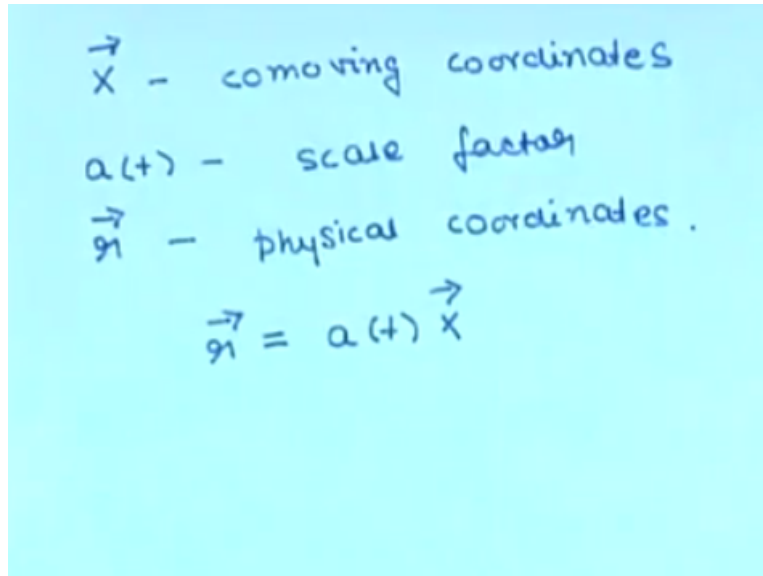 x⃗ - comoving coordinates
a(t) - scale factor
r⃗ - physical coordinates.
r⃗ = a(t) x⃗